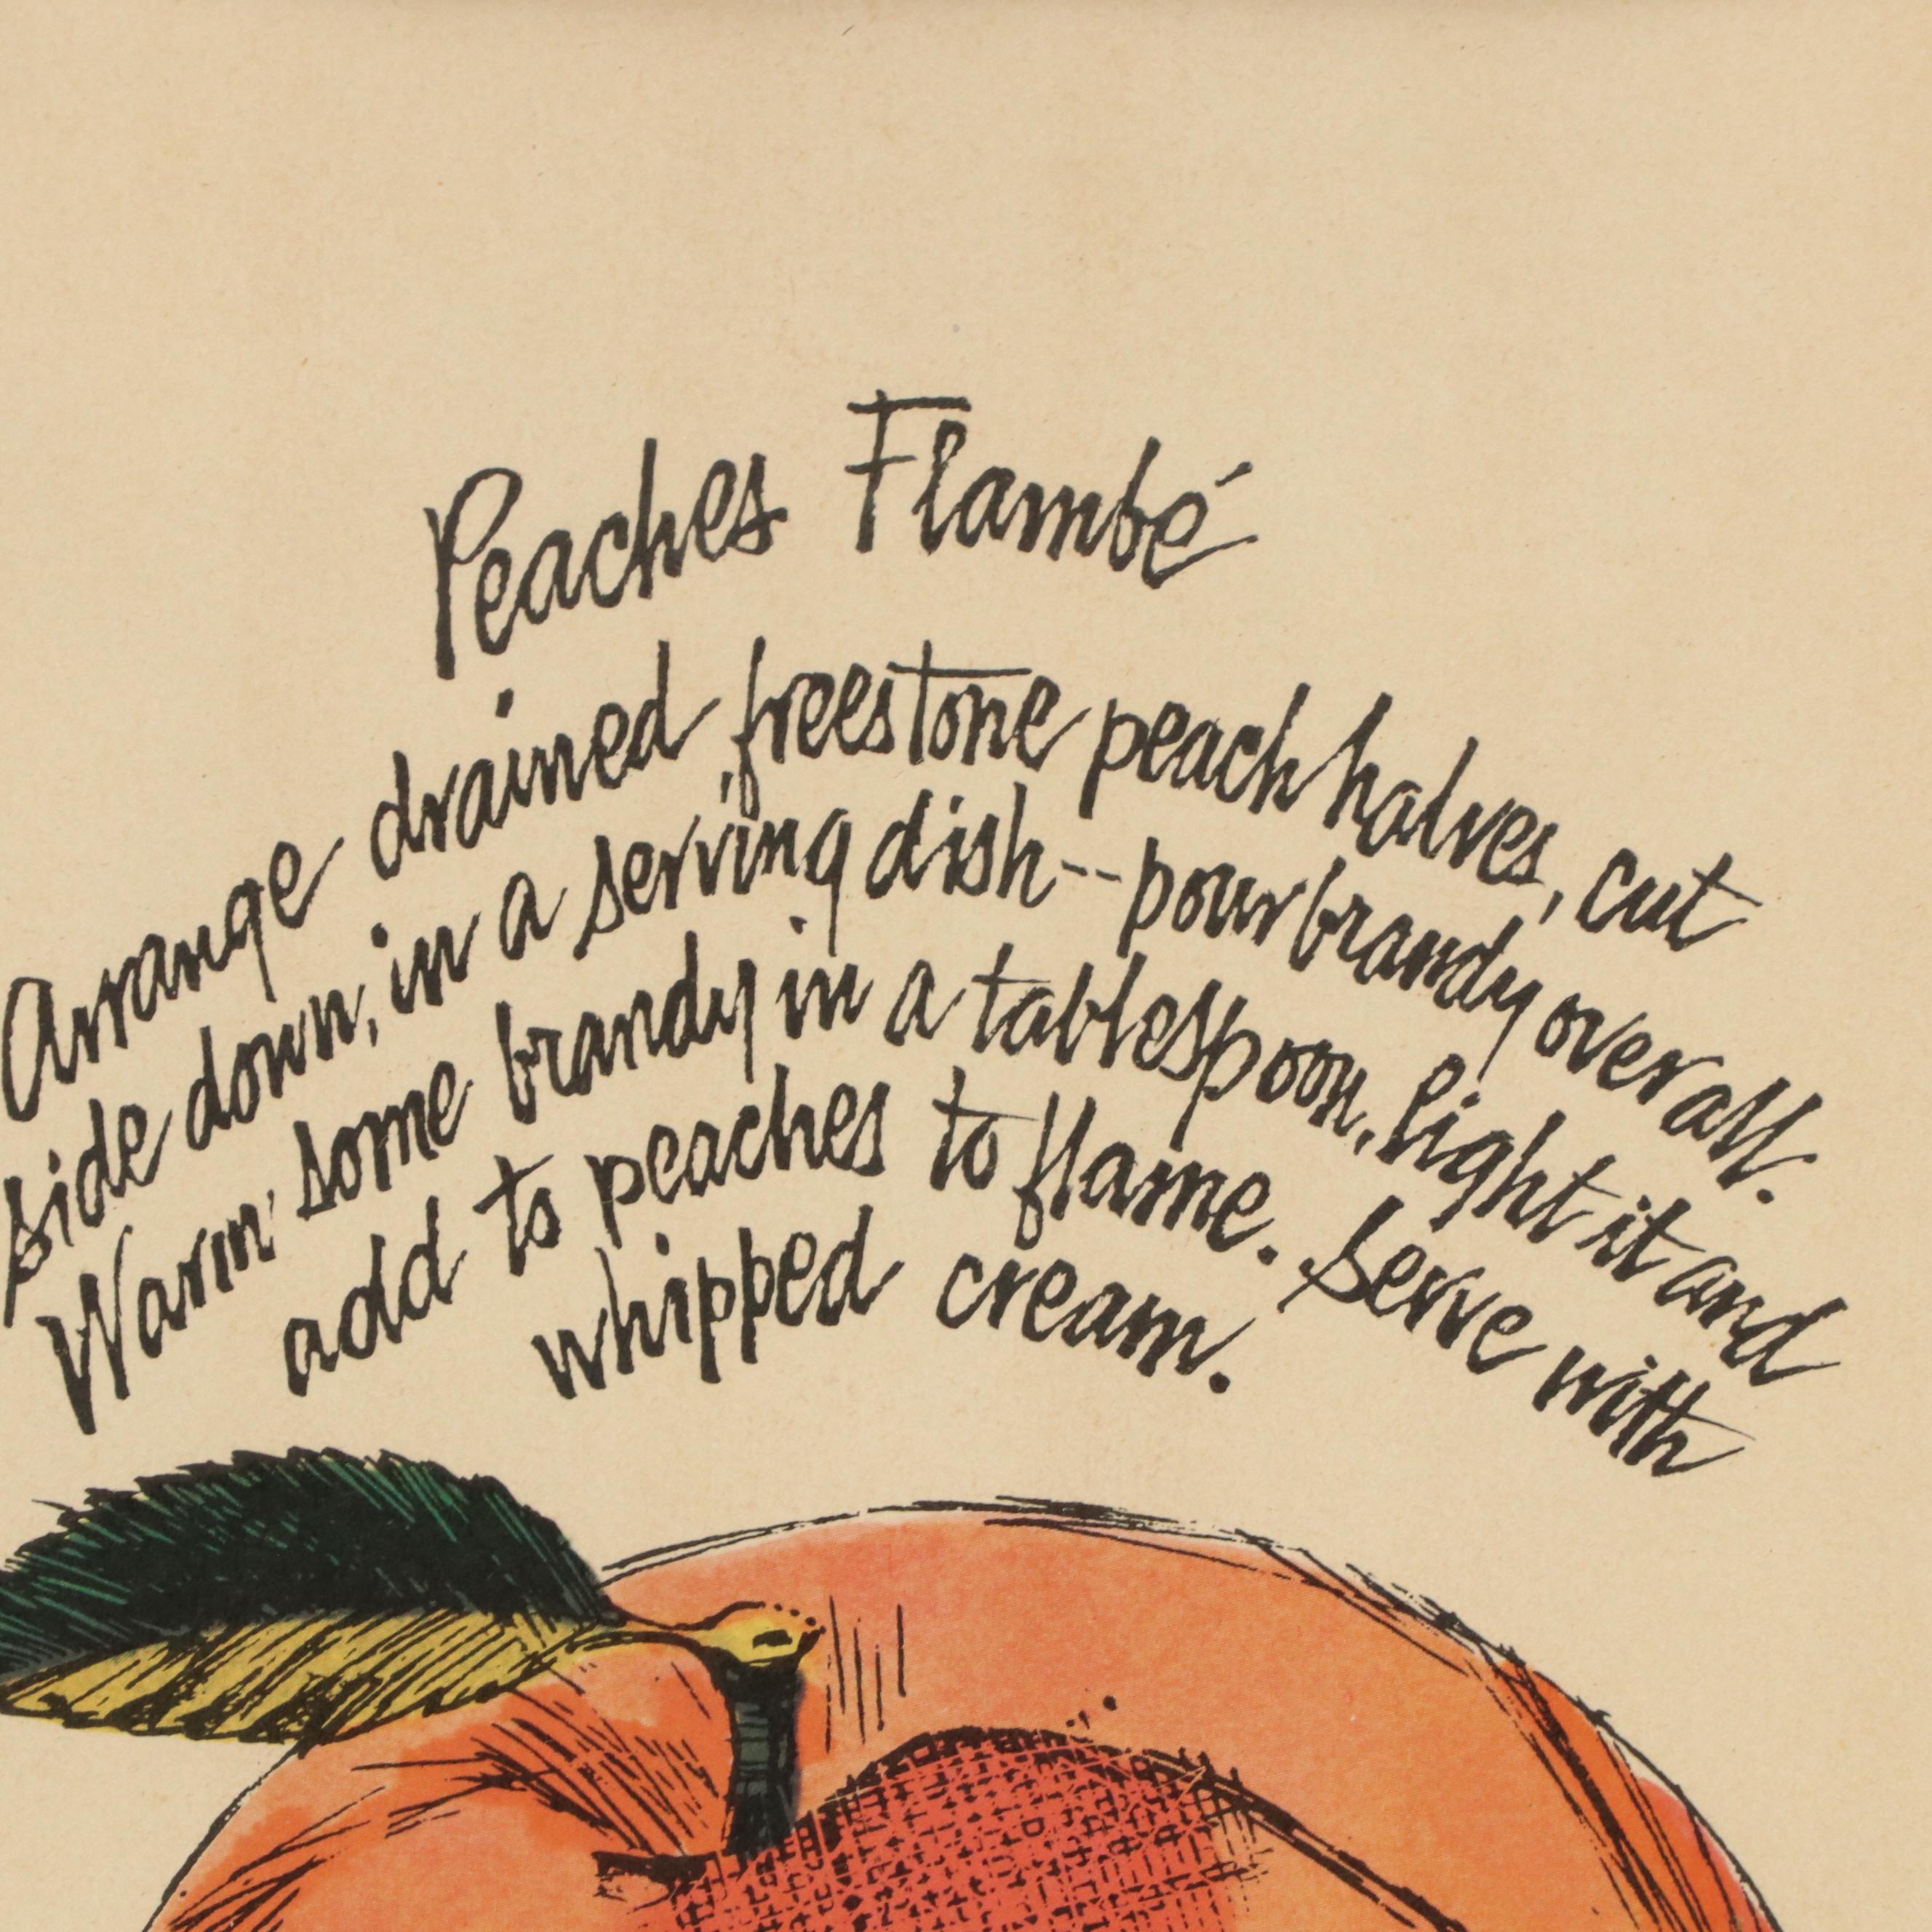 Peaches Flambé
Arrange drained freestone peach halves, cut
side down, in a serving dish--pour brandy over all.
Warm some brandy in a tablespoon, light it and
add to peaches to flame. Serve with
whipped cream.